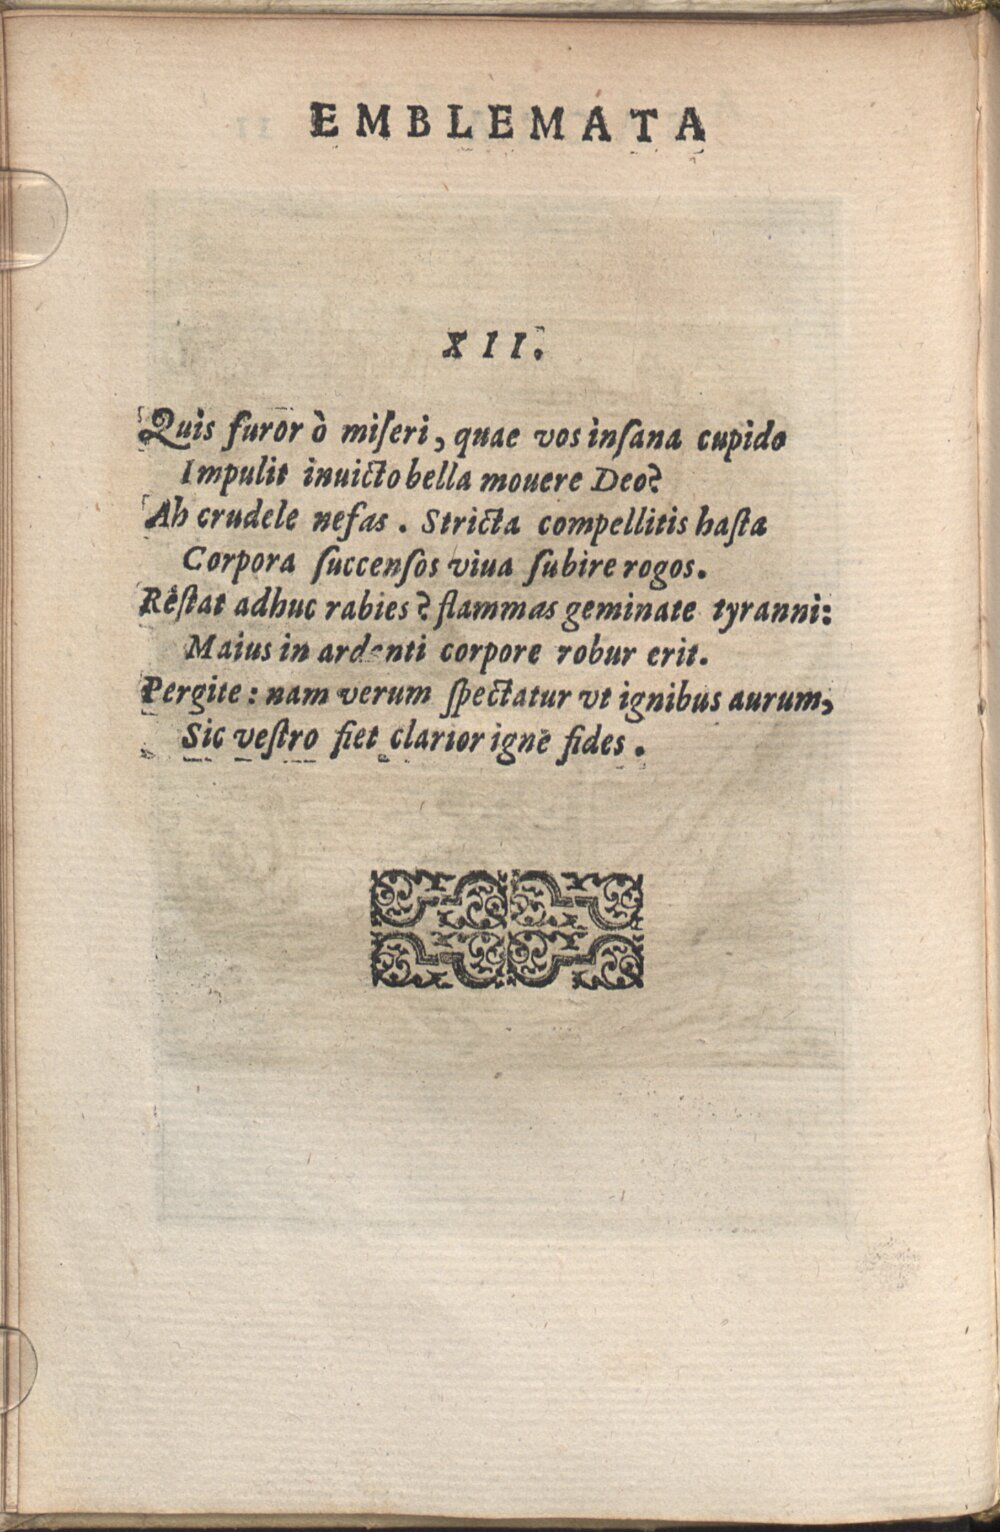 EMBLEMATA
XII.
Quis furor ò miſeri, quae vos inſana cupido
Impulit inuicto bella mouere Deo?
Ah crudele nefas. Stricta compellitis haſta
Corpora ſuccenſos viua ſubire rogos.
Reſtat adhuc rabies? flammas geminate tyranni:
Maius in ardenti corpore robur erit.
Pergite: nam verum ſpectatur vt ignibus aurum,
Sic veſtro fiet clarior igne fides.